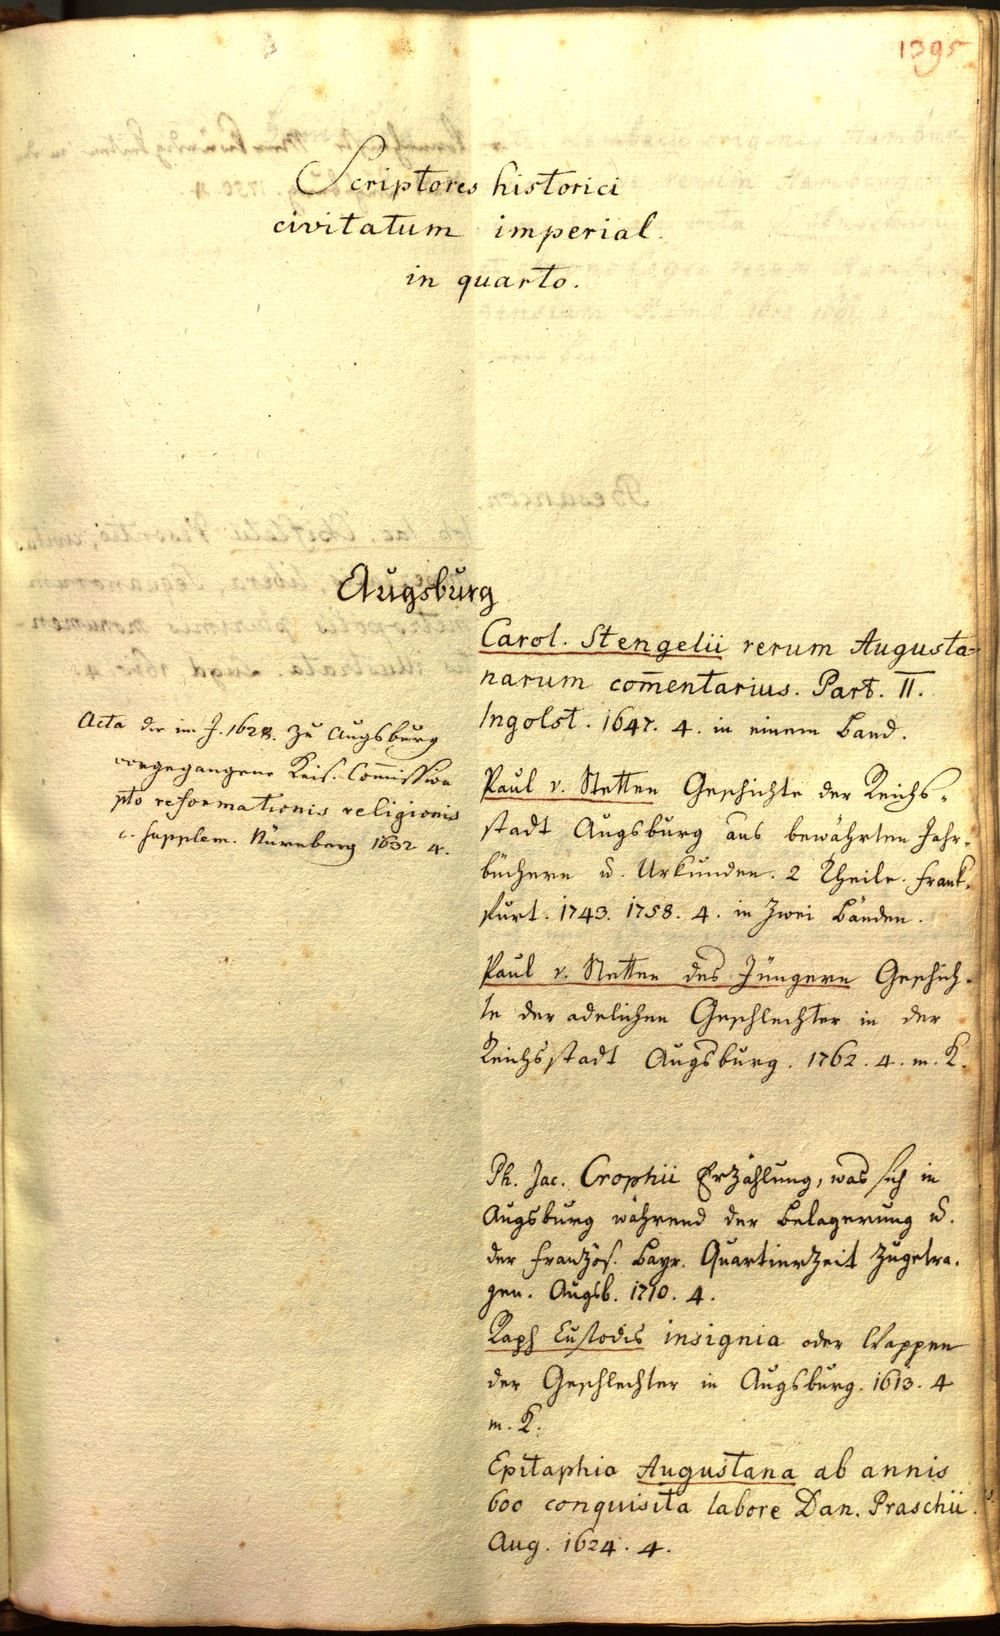 1395
Scriptores historici
civitatum imperial.
in quarto.
Augsburg
Carol. Stengelii rerum Augusta-
narum com̄entarius. Part. II.
Ingolst. 1647. 4. in einem Band.
Acta der im J. 1628. zu Augsburg
vorgegangene Keis. Com̄ission
pto reformationis religionis
c. supplem. Nürnberg 1632 4.
Paul v. Stetten Geschichte der Reichs-
stadt Augsburg aus bewährten Jahr-
büchern u. Urkunden. 2 Theile. Frank-
furt. 1743. 1758. 4. in zwei Bänden.
Paul v. Stetten des Jüngern Geschich-
te der adelichen Geschlechter in der
Reichsstadt Augsburg. 1762. 4. m. K.
Ph. Jac. Crophii Erzählung, was sich in
Augsburg während der Belagerung u.
der Französ. Bayr. Quartierzeit zugetra-
gen. Augsb. 1710. 4.
Raph Custodis insignia oder Wappen
der Geschlechter in Augsburg. 1613. 4
m. K.
Epitaphia Augustana ab annis
600 conquisita labore Dan. Praschii.
Aug. 1624. 4.